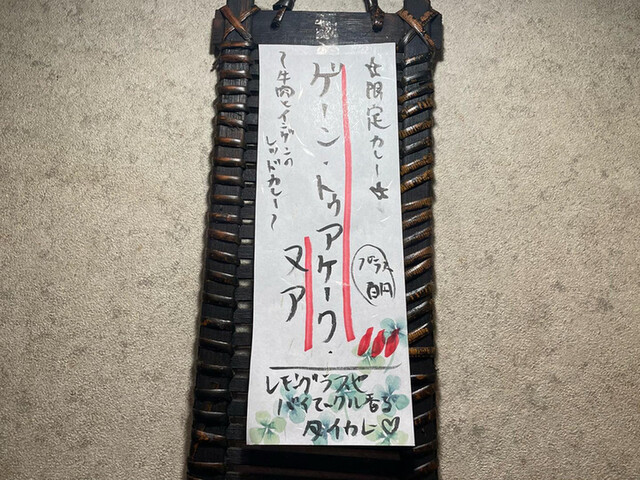 ☆限定カレー☆
ゲーン・トゥアケーク・
ヌア
プラス
百円
〜牛肉とインゲンの
レッドカレー〜
レモングラスや
バイマックル香る
タイカレー♡